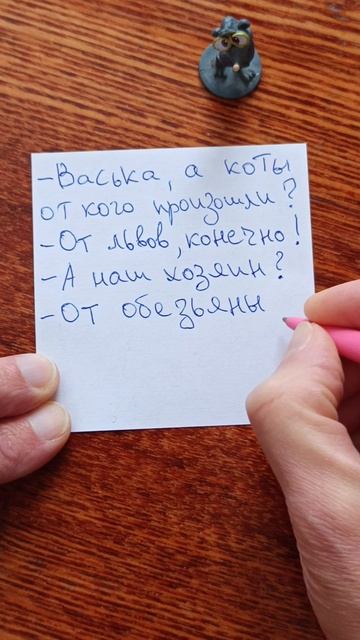 -Васька, а коты
от кого произошли?
-От львов, конечно!
-А наш хозяин?
-От обезьяны